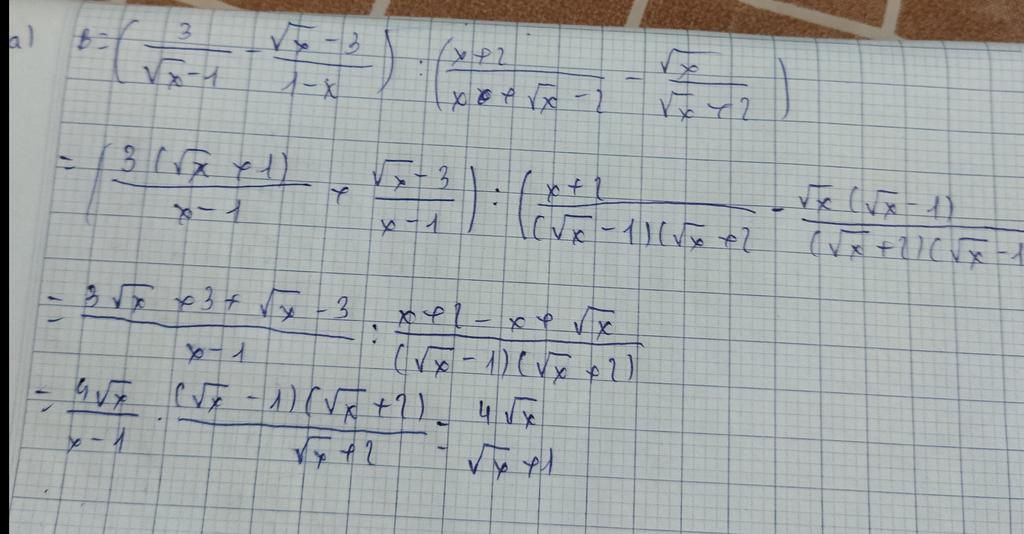 a) B = ( 3/(√x - 1) - (√x - 3)/(1 - x) ) : ( (x + 2)/(x + √x - 2) - √x/(√x + 2) )
= ( 3(√x + 1)/(x - 1) + (√x - 3)/(x - 1) ) : ( (x + 2)/((√x - 1)(√x + 2) - √x(√x - 1)/((√x + 2)(√x - 1
= (3√x + 3 + √x - 3)/(x - 1) : (x + 2 - x + √x)/((√x - 1)(√x + 2))
= 4√x/(x - 1) . (√x - 1)(√x + 2)/(√x + 2) = 4√x/(√x + 1)